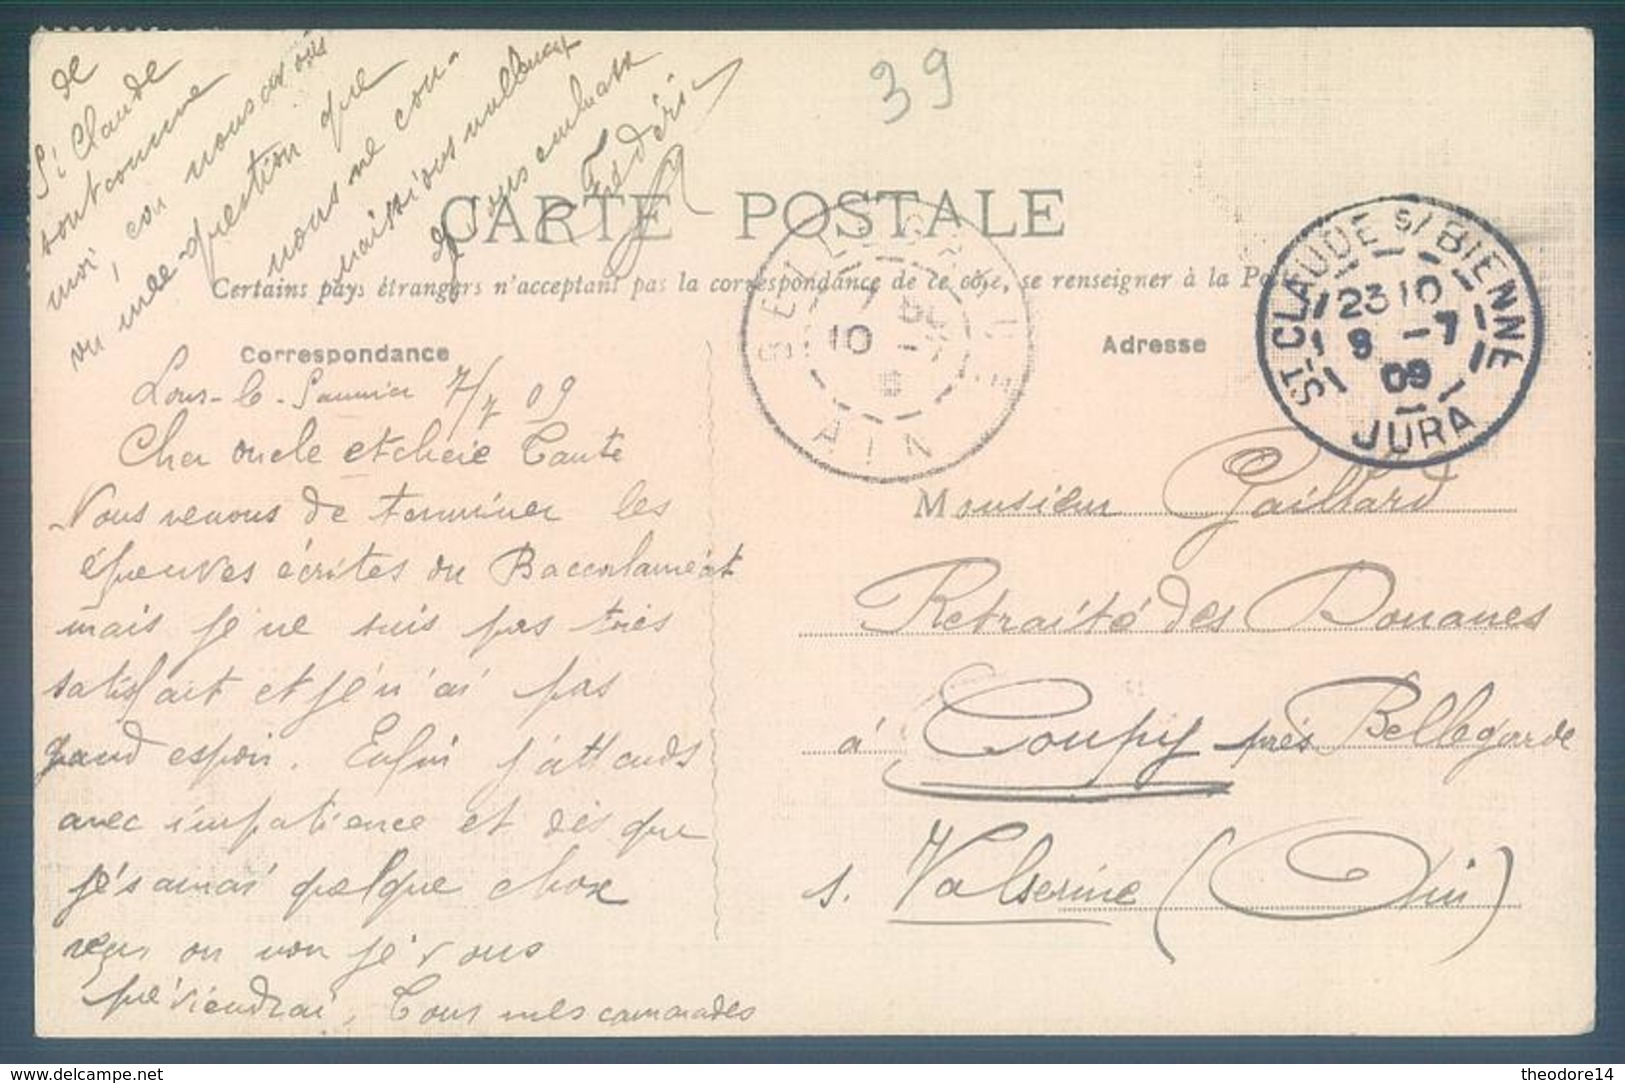 39
CARTE POSTALE
Certains pays étrangers n'acceptant pas la correspondance de ce côté, se renseigner à la Po
Correspondance
Adresse
ST-CLAUDE s/ BIENNE
23 10
9 -7
09
JURA
BELLEGARDE
10 -7
AIN
Lons-le-Saunier 7/7 09
Cher oncle et chère Tante
Nous venons de terminer les
épreuves écrites du Baccalauréat
mais je ne suis pas très
satisfait et je n'ai pas
grand espoir. Enfin j'attends
avec impatience et dès que
je saurai quelque chose
reçu ou non je vous
préviendrai. Tous mes camarades
de
St Claude
sont comme
moi, car nous avons
vu une question que
nous ne con-
naissions nullement
Je vous embrasse
Frédéric
Monsieur Gaillard
Retraité des Douanes
à Coupy près Bellegarde
s. Valserine (Ain)
www.delcampe.net
theodore14